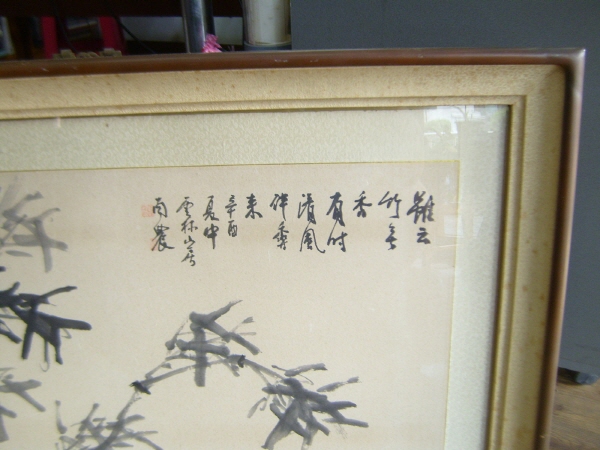 雖云
竹無
香
有时
清風
伴香
来
辛酉
夏中
雲林山居
雨農